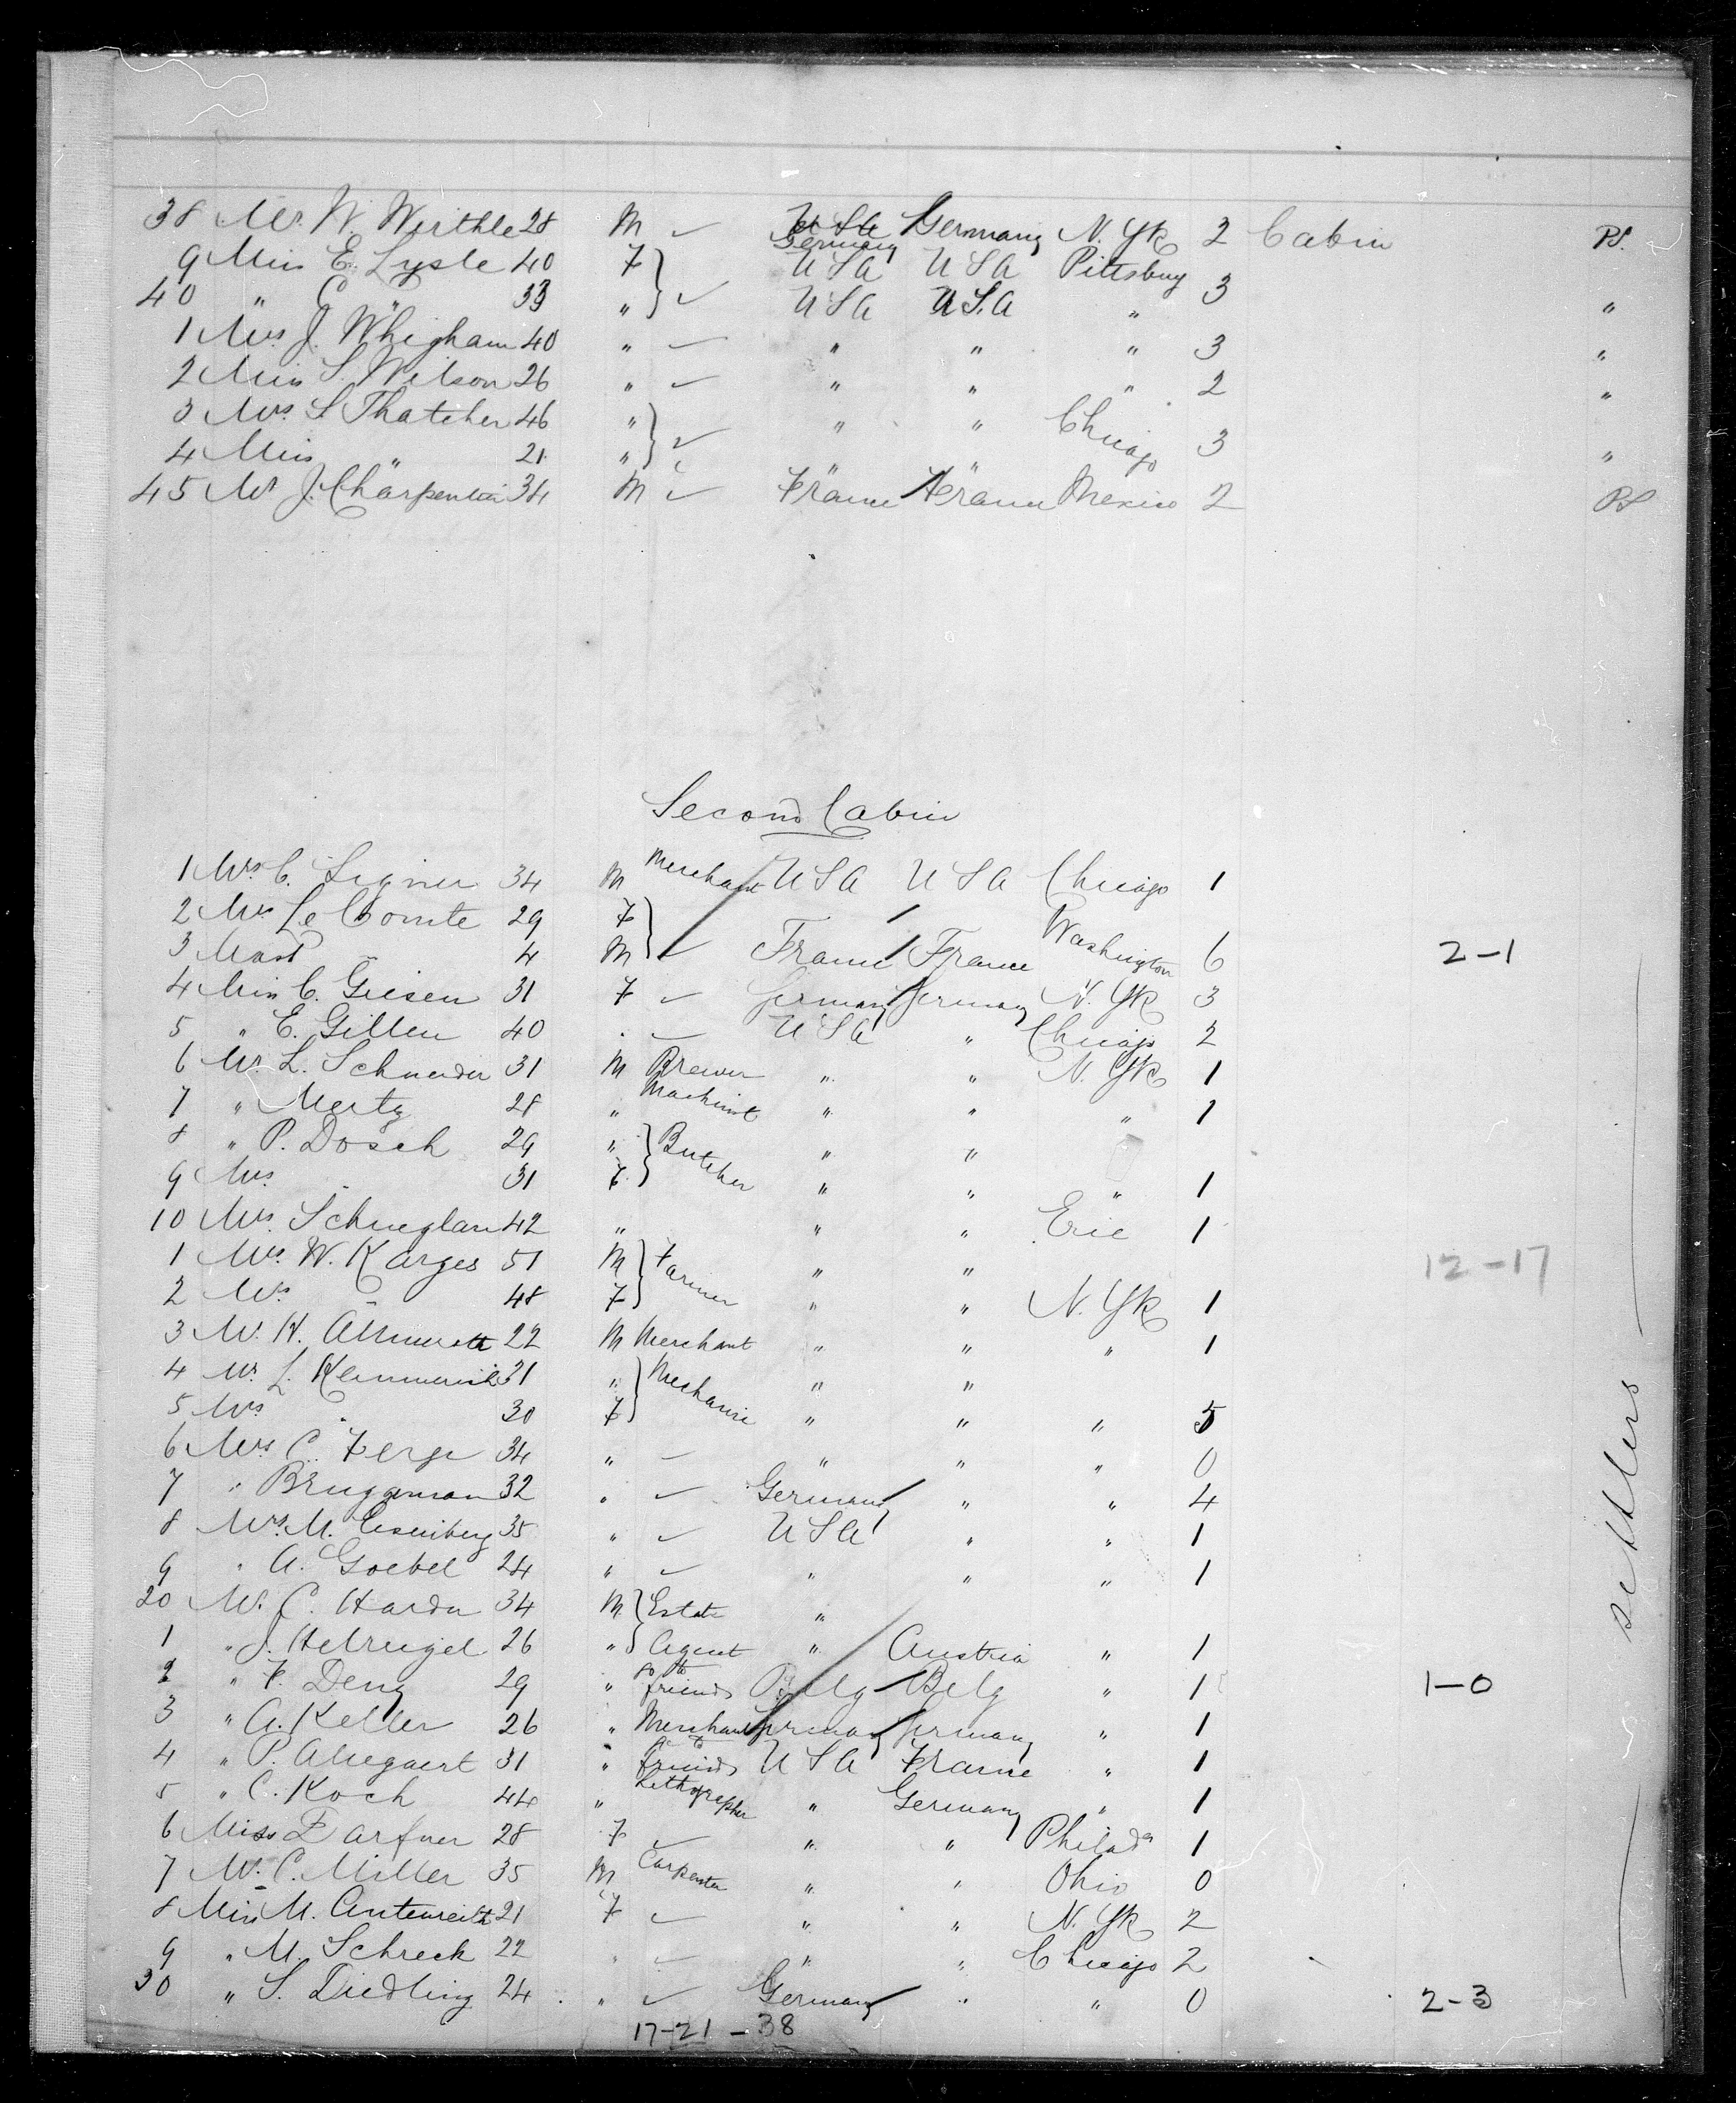 38 Mr. W. Wirthle 28 M ✓ USA Germany Germany N. Yk 2 Cabin PS.
9 Miss E. Lysle 40 F } USA USA Pittsburg
40 " C. " 33 " } ✓ USA U.S.A " 3 "
1 Mrs J. Whigham 40 " ✓ " " " 3 "
2 Miss S. Wilson 26 " ✓ " " " 2 "
3 Mrs S. Thatcher 46 " } " " Chicago
4 Miss " 21 " } ✓ " " 3 "
45 Mr J. Charpentier 34 M ✓ France France Mexico 2 PS
Second Cabin
1 Mr. C. Signer 34 M Merchant USA USA Chicago 1
2 Mrs Le Comte 29 F }
3 Mast " 4 M } ✓ France France Washington 6 2-1
4 Miss C. Giesen 31 F ✓ Germany Germany N. Yk 3
5 " E. Gillen 40 " ✓ USA " Chicago 2
6 Mr. L. Schneider 31 M Brewer " " N. Yk 1
7 " Merty 28 " Machinist " " " 1
8 " P. Dosch 29 " } Butcher " "
9 Mrs. " 31 F } " " " 1
10 Mrs. 42 " " " Erie 1
1 Mr. W. Karges 51 M } Farmer " " 12-17
2 Mrs " 48 F } " " N. Yk 1
3 Mr. H. 22 M Merchant " " " 1
4 Mr. L. 31 " } Mechanic " "
5 Mrs " 30 F } " " " 5
6 Mrs C. Ferge 34 " ✓ " " " 0
7 " Bruggman 32 " ✓ Germany " " 4
8 Mrs. M. Eisenberg 35 " ✓ USA " " 1
9 " A. Goebel 24 " ✓ " " " 1
20 Mr. C. Hardn 34 M } Estate "
1 " J. 26 " } Agent " Austria " 1
2 " F. Deny 29 " to friends Belg Belg " 1 1-0
3 " A. Keller 26 " Merchant Germany Germany " 1
4 " P. 31 " to friends USA France " 1
5 " C. Koch 44 " Lithographer " Germany " 1
6 Miss 28 F ✓ " " Philada 1
7 Mr. C. Miller 35 M Carpenter " " Ohio 0
8 Miss M. Antenreith 21 F ✓ " " N. Yk 2
9 " M. Schreck 22 " ✓ " " Chicago 2
30 " S. Diedling 24 " ✓ Germany " " 0 2-3
17-21-38
settlers